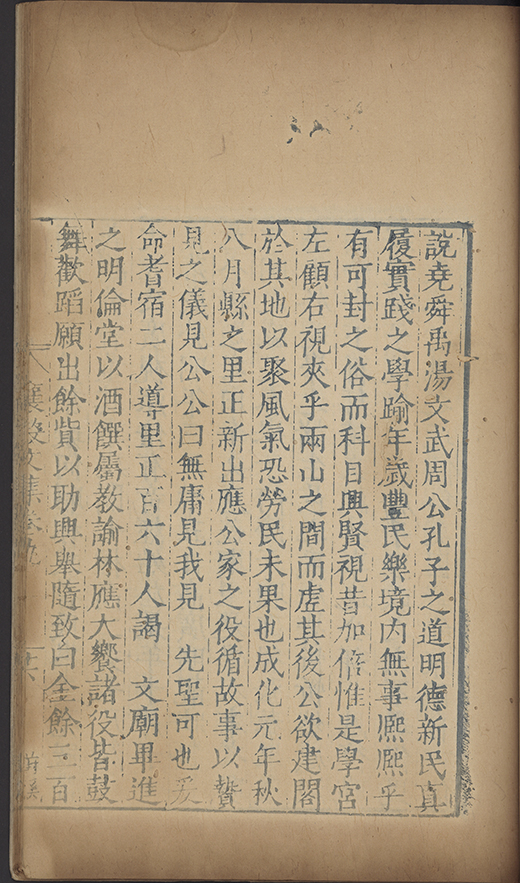 說堯舜禹湯文武周公孔子之道明德新民真
履實踐之學踰年歲豐民樂境內無事熈熈乎
有可封之俗而科目興賢視昔加倍惟是學宮
左顧右視夾乎兩山之間而虛其後公欲建閣
於其地以聚風氣恐勞民未果也成化元年秋
八月縣之里正新出應公家之役循故事以贄
見之儀見公公曰無庸見我見　先聖可也爰
命耆宿二人導里正百六十人謁　文廟畢進
之明倫堂以酒饌屬教諭林應大饗諸役皆鼓
舞歡蹈願出餘貲以助興舉隨致白金餘三百
襄毅文集卷九